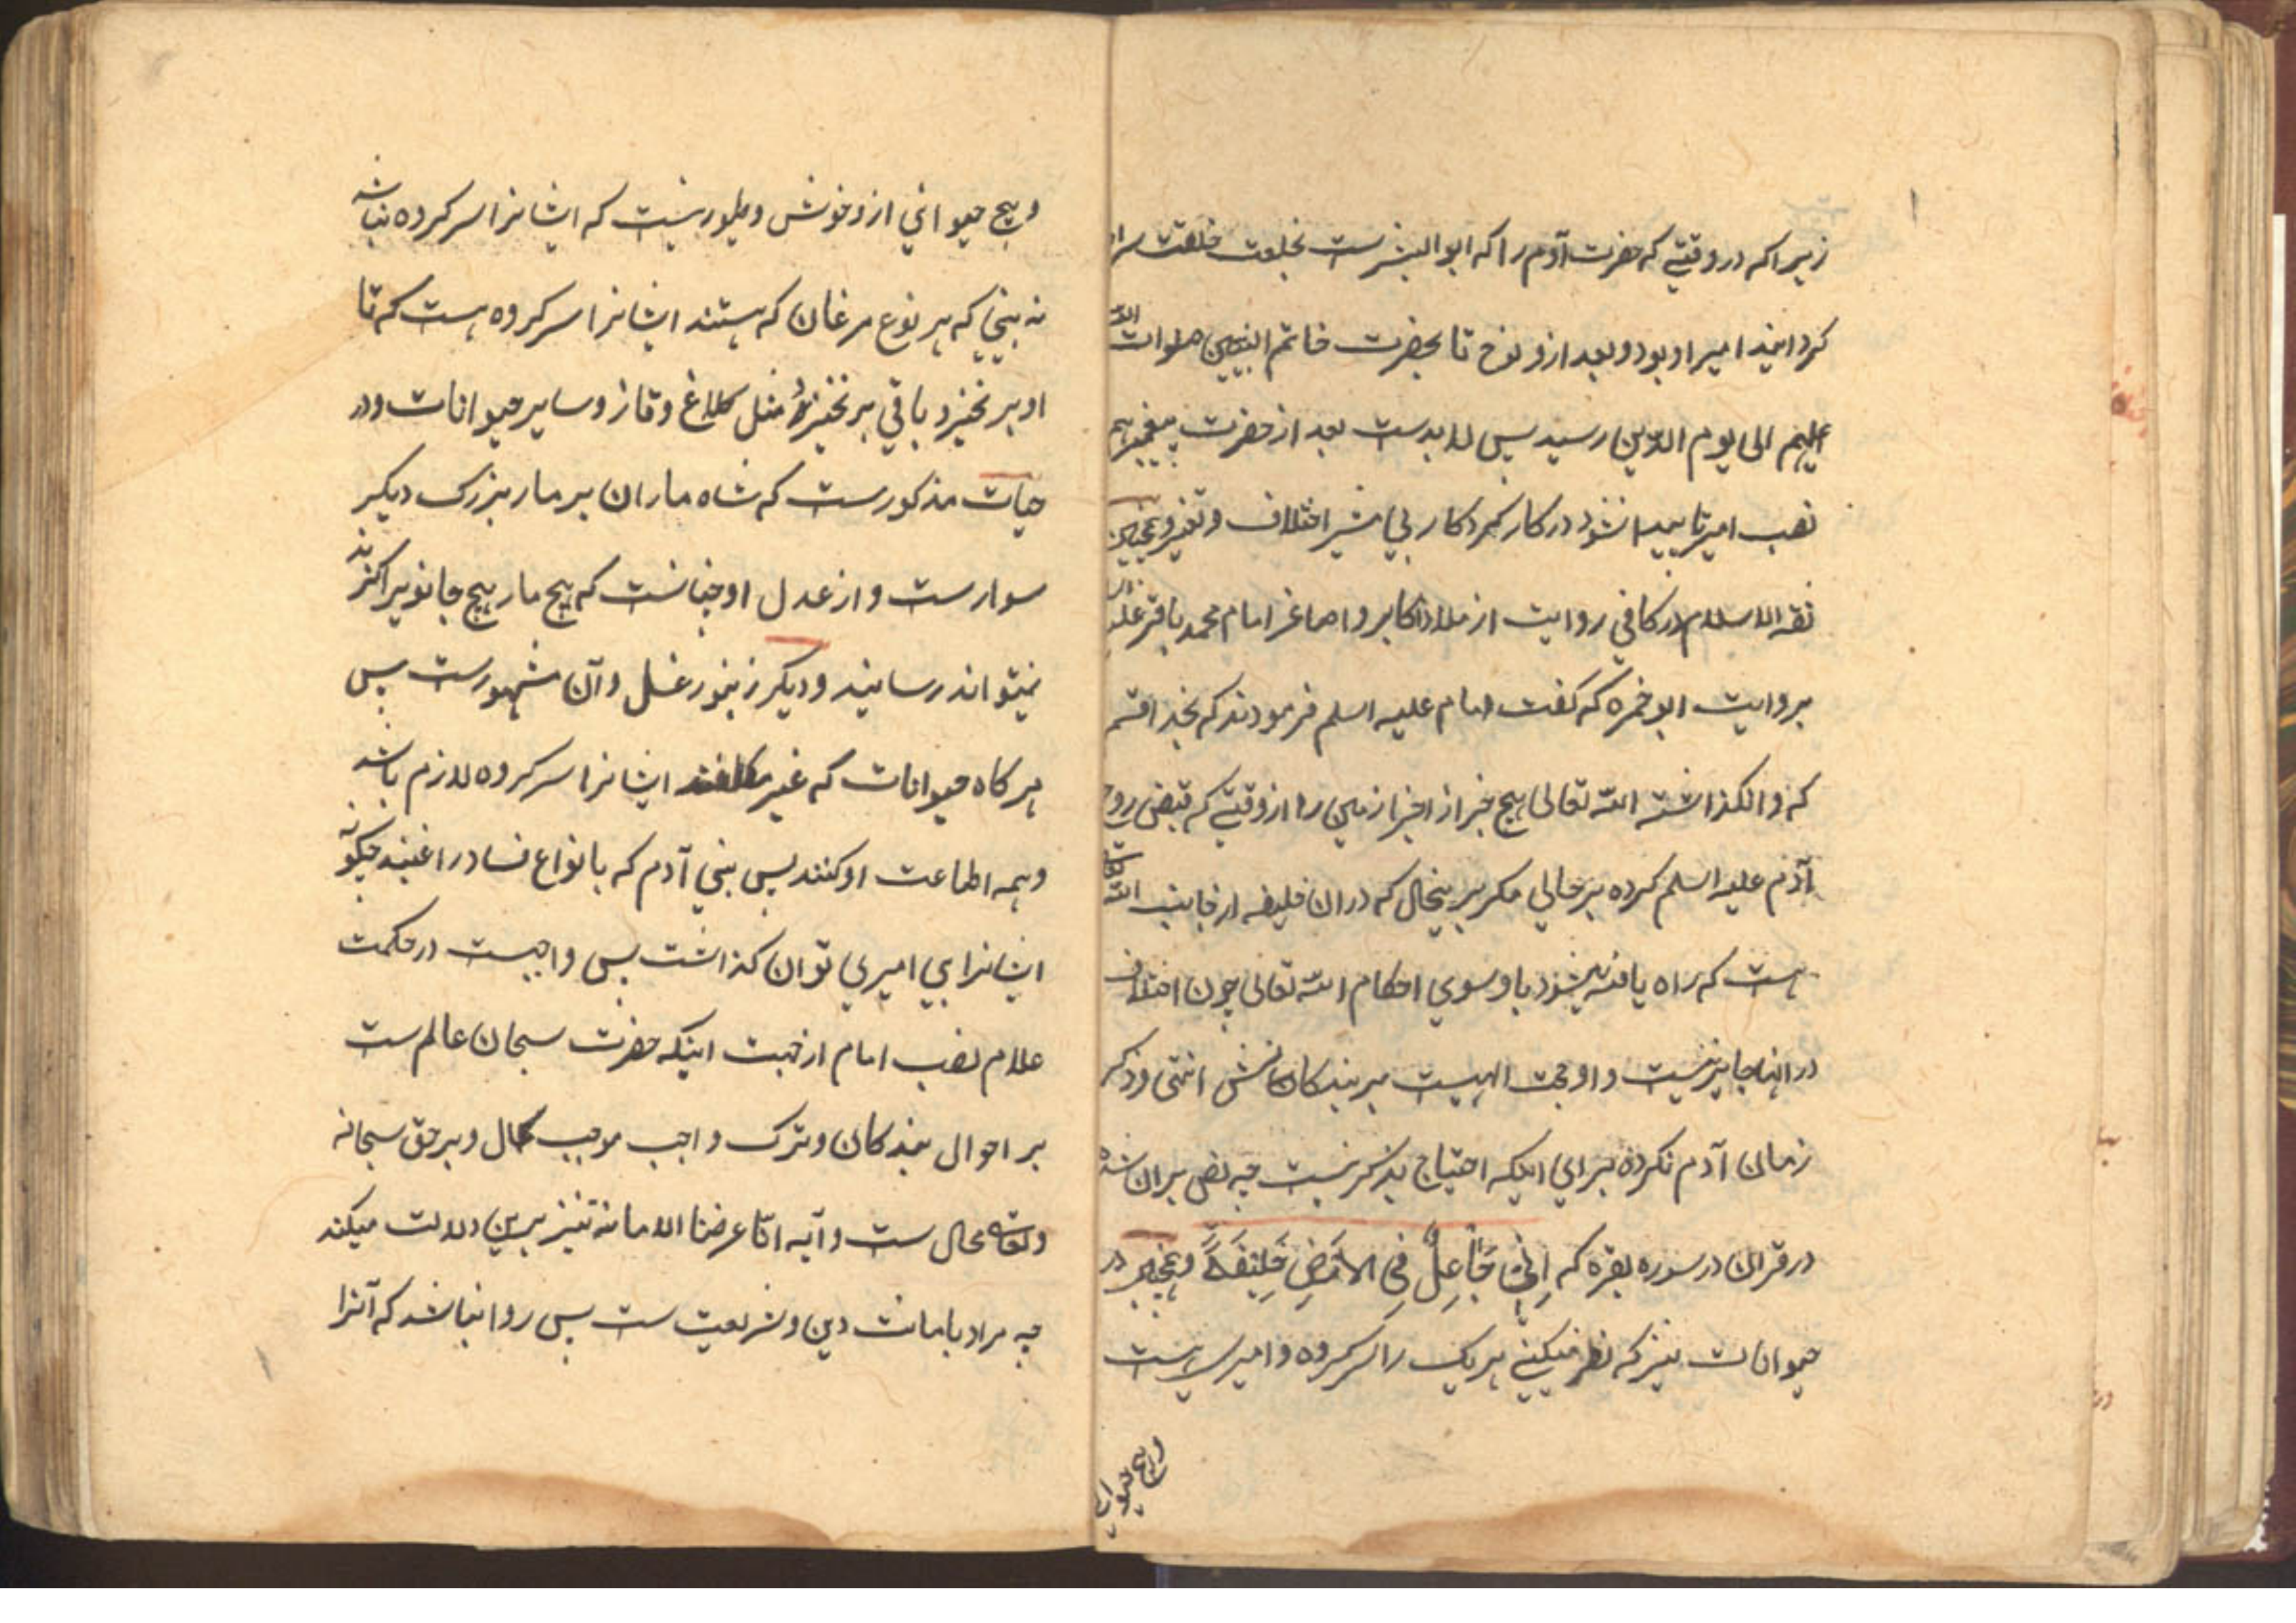 زیرا که در وقتی که حضرت آدم را که ابوالبشرست بخلعت خلقت سرا
کردانید امیر او بود و بعد از و نوح تا بحضرت خاتم النبیین صلوات الله
علیهم الی یوم الدین رسید پس لا بدست بعد از حضرت پیغمبر هم
نصب امیر تا پیدا نشود در کار کردکار بی اختلاف و تغیر و همچنین
ثقه الاسلام در کافی روایت از ملاذ اکابر و اصاغر امام محمد باقر علیه
بروایت ابو حمزه که کفت امام علیه السلم فرمودند که بخدا قسم
که وا نکذاشته الله تعالی هیچ جز از اجزا زمین را از وقتی که قبض روح
آدم علیه السلم کرده بر حالی مکر بر ینحال که در ان خلیفه از جانب الله تعالی
هست که راه یافته میشود باو سوی احکام الله تعالی چون اختلاف
در انها جایز نیست و او حجت الهیست بر بندکانش انتهی و ذکر
زمان آدم نکرده برای اینکه احتیاج بذکر نیست چه نص بر ان شده
در قران در سوره بقره که اِنّی جَاعِلٌ فِی الاَرْضِ خَلِیفَةً و همچنین در
حیوانات نیز که نظر میکنی هر یک را سرکرده و امیری هست
و هیچ حیوانی
و هیچ حیوانی از وحوش و طیور نیست که ایشانرا سرکرده نباشد
نه بینی که هر نوع مرغان که هستند ایشانرا سرکرده هست که تا
او بر نخیزد باقی بر نخیزند مثل کلاغ و قاز و سایر حیوانات و در
حیات مذکورست که شاه ماران بر مار بزرک دیکر
سوارست و از عدل او چنانست که هیچ مار هیچ جانور را کزند
نمیتواند رسانید و دیکر زنبور عسل و آن مشهورست پس
هر کاه حیوانات که غیر مکلفند ایشانرا سرکرده لازم باشد
و همه اطاعت او کنند پس بنی آدم که بانواع فساد راغبند چکونه
ایشانرا بی امیری توان کذاشت پس واجبست در حکمت
علام نصب امام از جهت اینکه حضرت سبحان عالم ست
بر احوال بندکان و ترک واجب موجب و بر حق سبحانه
و تعالی محال ست و آیه انّا عرضنا الامانه نیز برین دلالت میکند
چه مراد بامانت دین و شریعت ست پس روا نباشد که آنرا